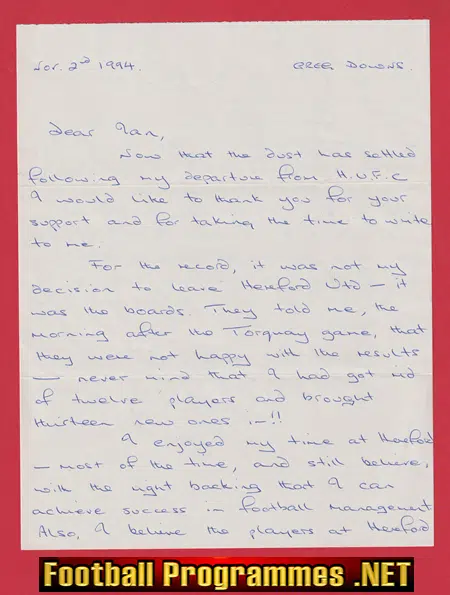 Nov. 2nd 1994. GREG DOWNS.
Dear Ian,
Now that the dust has settled
following my departure from H.U.F.C
I would like to thank you for your
support and for taking the time to write
to me.
For the record, it was not my
decision to leave Hereford Utd - it
was the boards. They told me, the
morning after the Torquay game, that
they were not happy with the results
- never mind that I had got rid
of twelve players and brought
thirteen new ones in-!!
I enjoyed my time at Hereford
- most of the time, and still believe,
with the right backing that I can
achieve success in football management
Also, I believe the players at Hereford
Football Programmes .NET